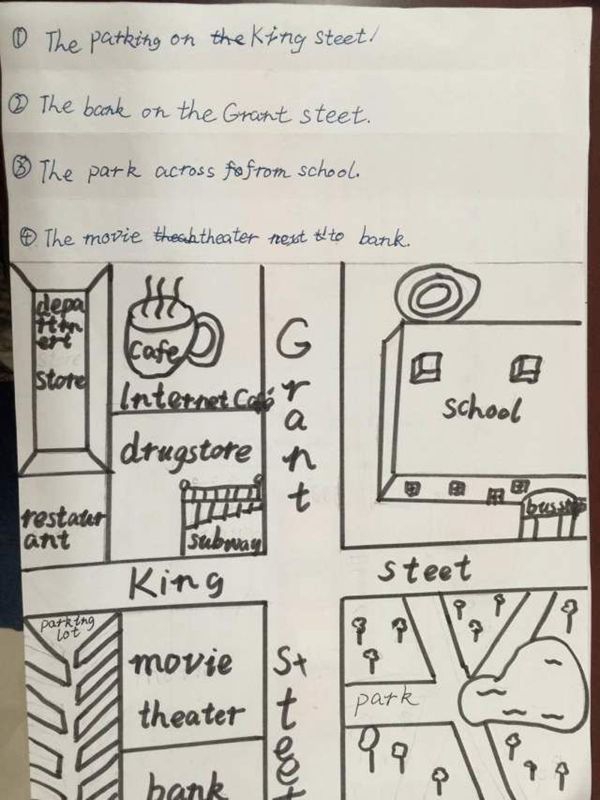 ① The parking on the King steet!
② The bank on the Grant steet.
③ The park across fofrom school.
④ The movie theahtheater next tto bank.
depa
rtm
ent
store
Cafe
Internet Café
drugstore
subway
restaur
ant
Grant
school
bus stop
King
steet
parking
lot
movie
theater
bank
Steet
park